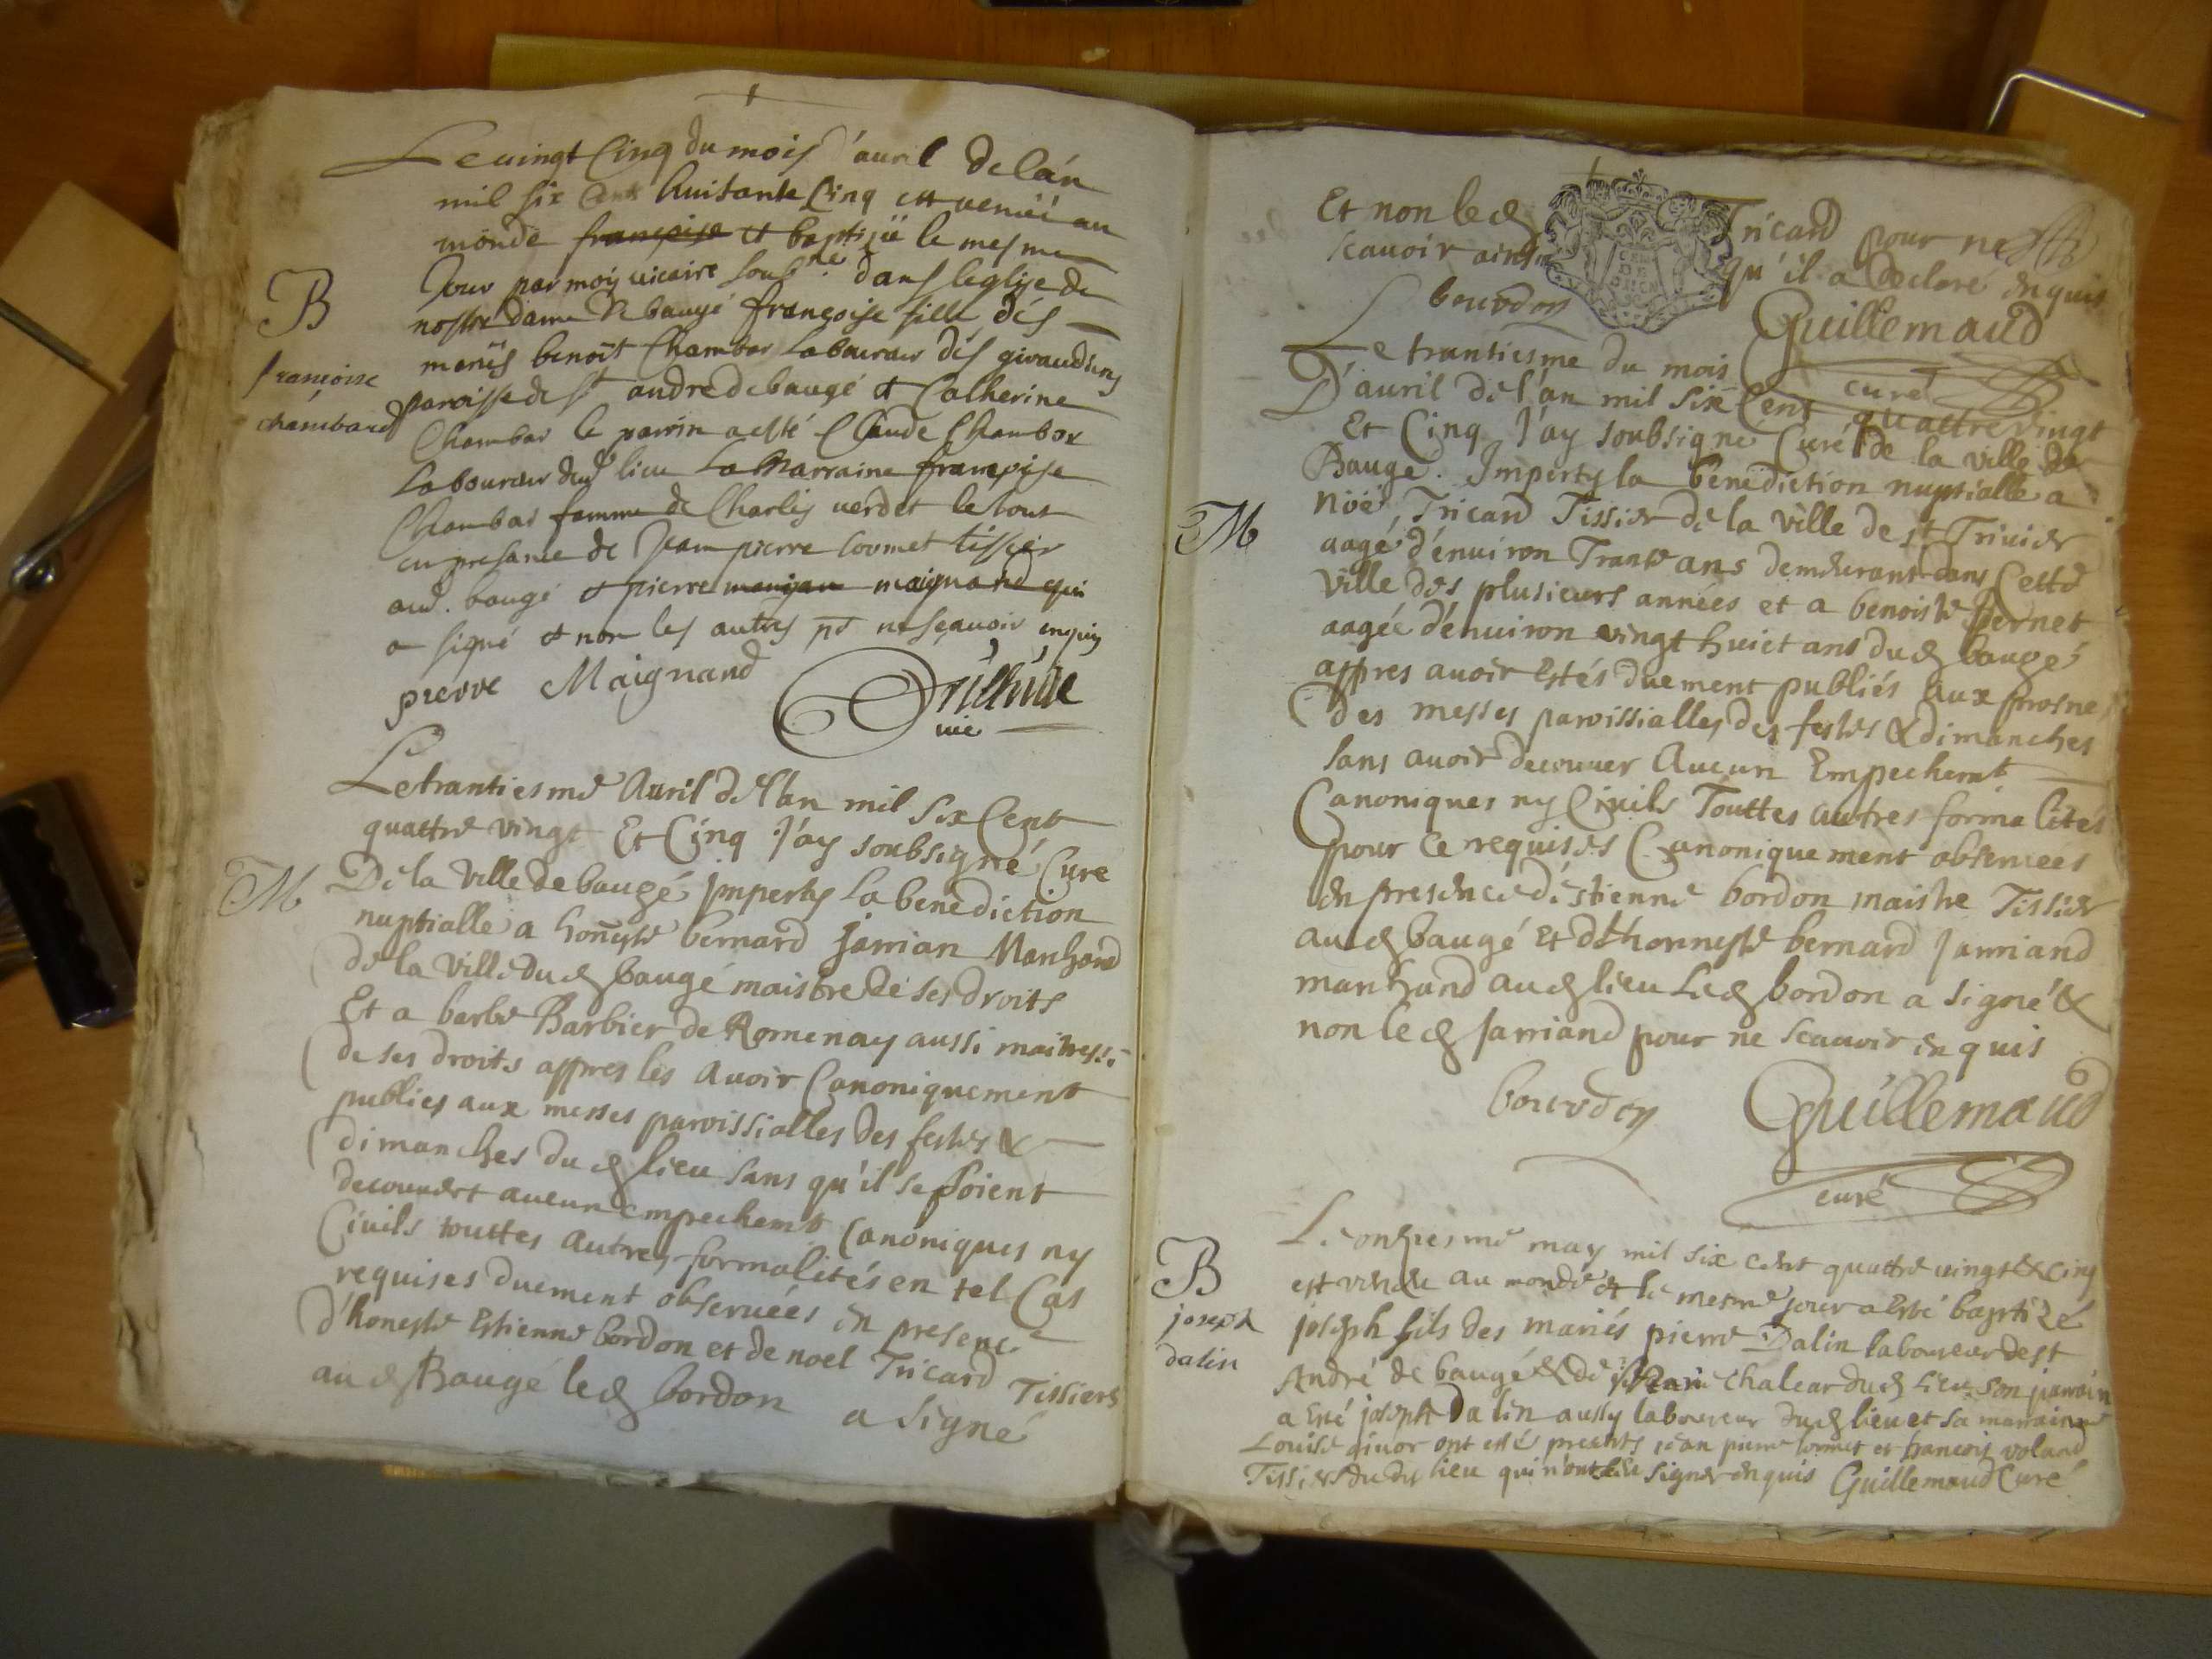 Le vingt Cinq du mois d'auril de l'an
mil six Cent huitante Cinq est venüe au
monde françoise et baptisée le mesme
Jour par moy vicaire soubs.né dans leglise de
B
nostre dame de baugé françoise fille dés
mariés benoit Chambar Laboureur dés giraudins
françoise
paroisse de st andre de baugé et Catherine
chambard
Chambar le parrin a esté Claude Chambar
Laboureur dud lieu La Marraine françoise
Chambar famme de Charles verdet le tout
en presance de Jean pierre Cormet tissier
aud. baugé et pierre maignand qui
a signé et non les autres pr ne sçavoir enquis
pierre Maignand
vic
Le trantiesme Auril de l'an mil six Cent
quattre vingt Et Cinq J'ay soubsigné Curé
M
De la ville de baugé Imperty la benediction
nuptialle a honeste bernard Jarrian Marchand
de la ville dud baugé maistre de ses droits
Et a barbe Barbier de Romenay aussi maitresse
de ses droits appres les avoir Canoniquement
publies aux messes paroissialles des festes &
dimanches dud lieu sans qu'il se soient
decouuert aucun empechemt Canoniques ny
Ciuils touttes autres formalités en tel Cas
requises duement obseruées en presence
d'honeste Estienne bordon et de noel Tricard Tissiers
aud Baugé led bordon a signé
Et non led Tricard pour ne
scauoir ainsi qu'il a declaré enquis
bourdon
Guillemaud
curé
Le trantiesme du mois
D'auril de l'an mil six Cent quattre vingt
Et Cinq J'ay soubsigné Curé de la ville de
Baugé. Imperty la benediction nuptialle a
M
Noël Tricard Tissier de la ville de st Triuier
aagé d'enuiron Trante ans demeurant dans Cette
ville des plusieurs années et a benoiste Pernet
aagée d'enuiron vingt huict ans dud baugé
appres auoir Estés duement publiés aux prosnes
des messes paroissialles des festes & dimanches
sans auoir decouuer Aucun Empechemt
Canoniques ny Ciuils Touttes autres formalités
pour ce requises Canoniquement obseruees
en presence d'estienne bordon maistre Tissier
aud baugé Et d'honneste bernard Jarriand
marchand aud lieu Led bordon a signé &
non led Jarriand pour ne scauoir enquis
bourdon
Guillemaud
curé
Le onziesme may mil six cent quattre vingt & cinq
B
est venue au monde et le mesme jour a Esté baptizé
joseph
joseph fils des mariés pierre Dalin laboureur de st
dalin
André de baugé & de chalcar dud Lieu son parrain
a Esté joseph Dalin aussy laboureur dud lieu et sa marraine
Louise ont esté presents jean pierre Cormet et francois voland
Tissiers dudy lieu qui n'ont signer enquis Guillemaud Curé